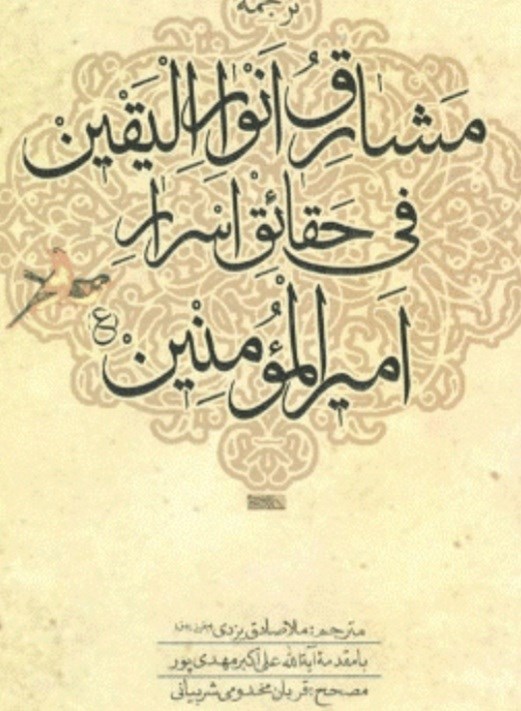 ترجمه
مَشارِقُ اَنْوارِ الْيَقيْنِ
فی حَقائِقِ اَسْرارِ
اَميرِالْمُؤْمِنينْ
ع
مترجم: ملاصادق یزدی
با مقدمهٔ آیة الله علی اکبر مهدی پور
مصحح: قربان مخدومی شربیانی